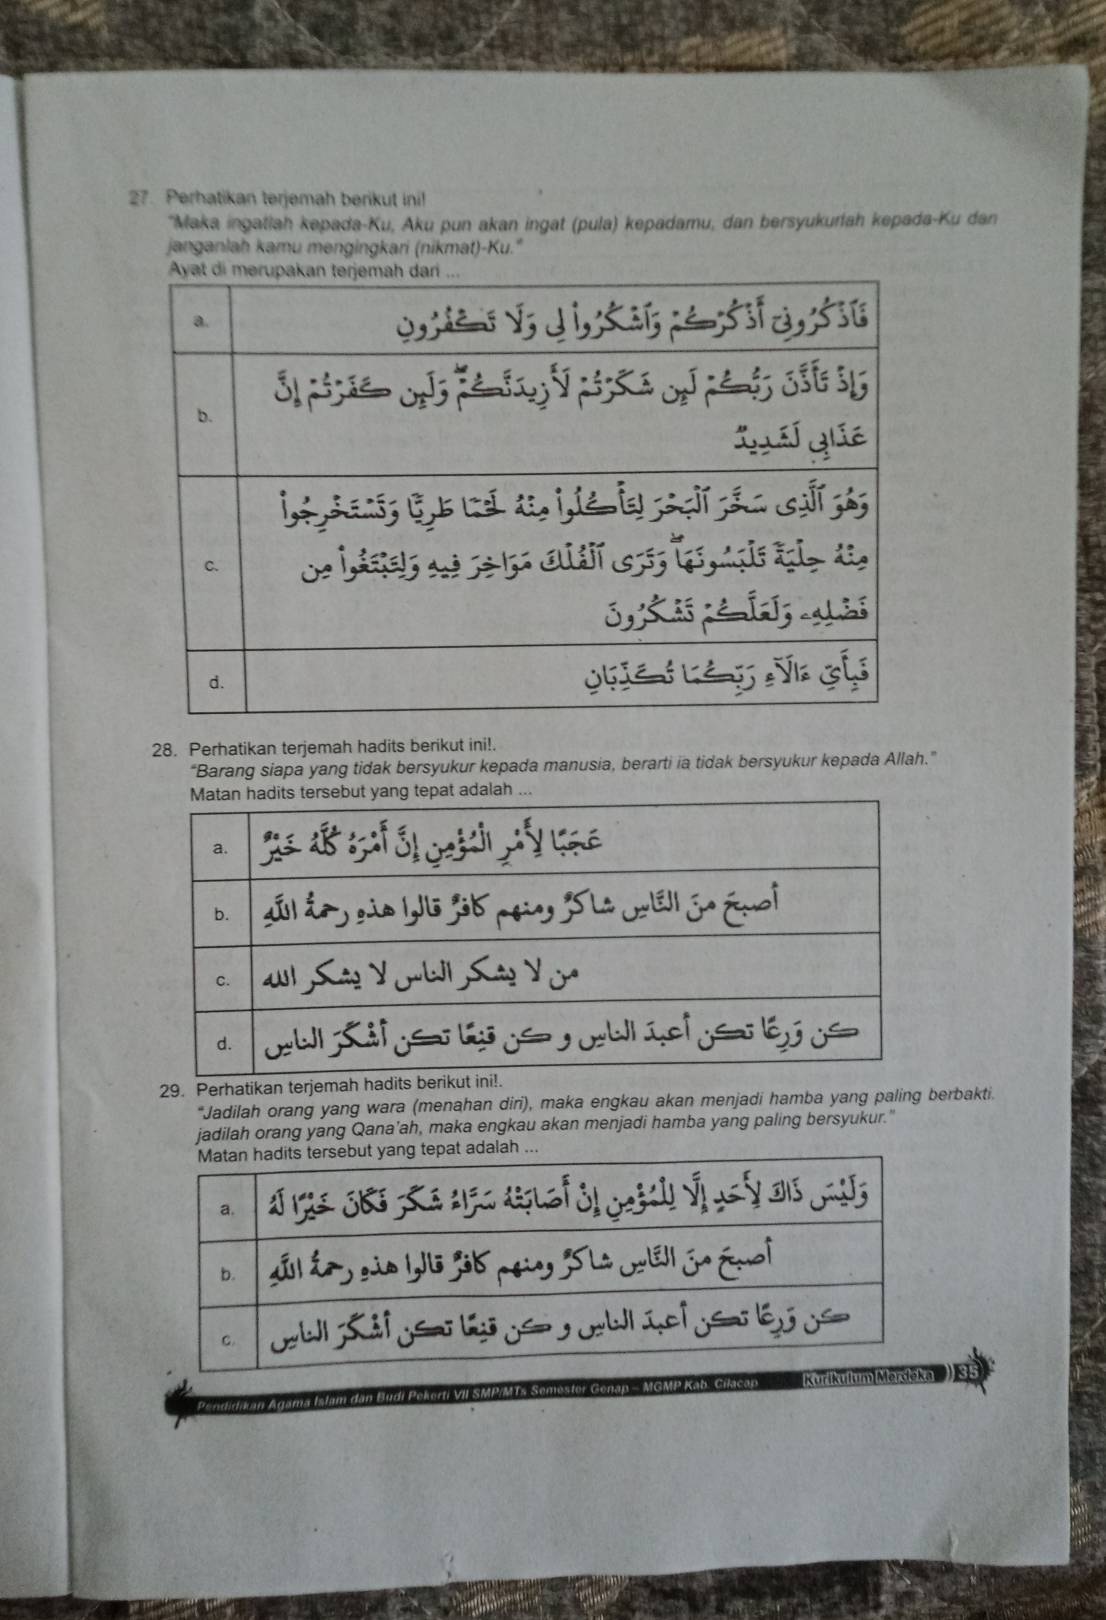 27. Perhatikan terjemah berikut ini!
"Maka ingatlah kepada-Ku, Aku pun akan ingat (pula) kepadamu, dan bersyukurlah kepada-Ku dan
janganlah kamu mengingkari (nikmat)-Ku."
Ayat di merupakan terjemah dari ...
a. فَاذْكُرُونِيٓ أَذْكُرْكُمْ وَاشْكُرُوا۟ لِي وَلَا تَكْفُرُونِ
b. وَإِذْ تَأَذَّنَ رَبُّكُمْ لَئِن شَكَرْتُمْ لَأَزِيدَنَّكُمْ ۖ وَلَئِن كَفَرْتُمْ إِنَّ
عَذَابِي لَشَدِيدٌ
c. وَهُوَ ٱلَّذِي سَخَّرَ ٱلْبَحْرَ لِتَأْكُلُوا۟ مِنْهُ لَحْمًا طَرِيًّا وَتَسْتَخْرِجُوا۟
مِنْهُ حِلْيَةً تَلْبَسُونَهَا ۖ وَتَرَى ٱلْفُلْكَ مَوَاخِرَ فِيهِ وَلِتَبْتَغُوا۟ مِن
فَضْلِهِۦ وَلَعَلَّكُمْ تَشْكُرُونَ
d. فَبِأَيِّ ءَالَآءِ رَبِّكُمَا تُكَذِّبَانِ
28. Perhatikan terjemah hadits berikut ini!.
"Barang siapa yang tidak bersyukur kepada manusia, berarti ia tidak bersyukur kepada Allah."
Matan hadits tersebut yang tepat adalah ...
a. عَجَبًا لِأَمْرِ الْمُؤْمِنِ إِنَّ أَمْرَهُ كُلَّهُ خَيْرٌ
b. أَصبَحَ مِنَ النَّاسِ شاكرٌ ومنهم كافرٌ قالوا هذه رحمةُ اللَّهِ
c. من لا يشكر الناس لا يشكر الله
d. كن وَرِعًا تكن أعبدَ الناس و كن قنِعًا تكن أَشْكَرَ الناسِ
29. Perhatikan terjemah hadits berikut ini!.
"Jadilah orang yang wara (menahan diri), maka engkau akan menjadi hamba yang paling berbakti.
jadilah orang yang Qana'ah, maka engkau akan menjadi hamba yang paling bersyukur."
Matan hadits tersebut yang tepat adalah ...
a. وَلَيْسَ ذَاكَ لِأَحَدٍ إِلَّا لِلْمُؤْمِنِ إِنْ أَصَابَتْهُ سَرَّاءُ شَكَرَ فَكَانَ خَيْرًا لَهُ
b. أَصبَحَ مِنَ النَّاسِ شاكرٌ ومنهم كافرٌ قالوا هذه رحمةُ اللَّهِ
c. كن وَرِعًا تكن أعبدَ الناس و كن قنِعًا تكن أَشْكَرَ الناسِ
Pendidikan Agama Islam dan Budi Pekerti VII SMP/MTs Semester Genap - MGMP Kab. Cilacap Kurikulum Merdeka )) 35